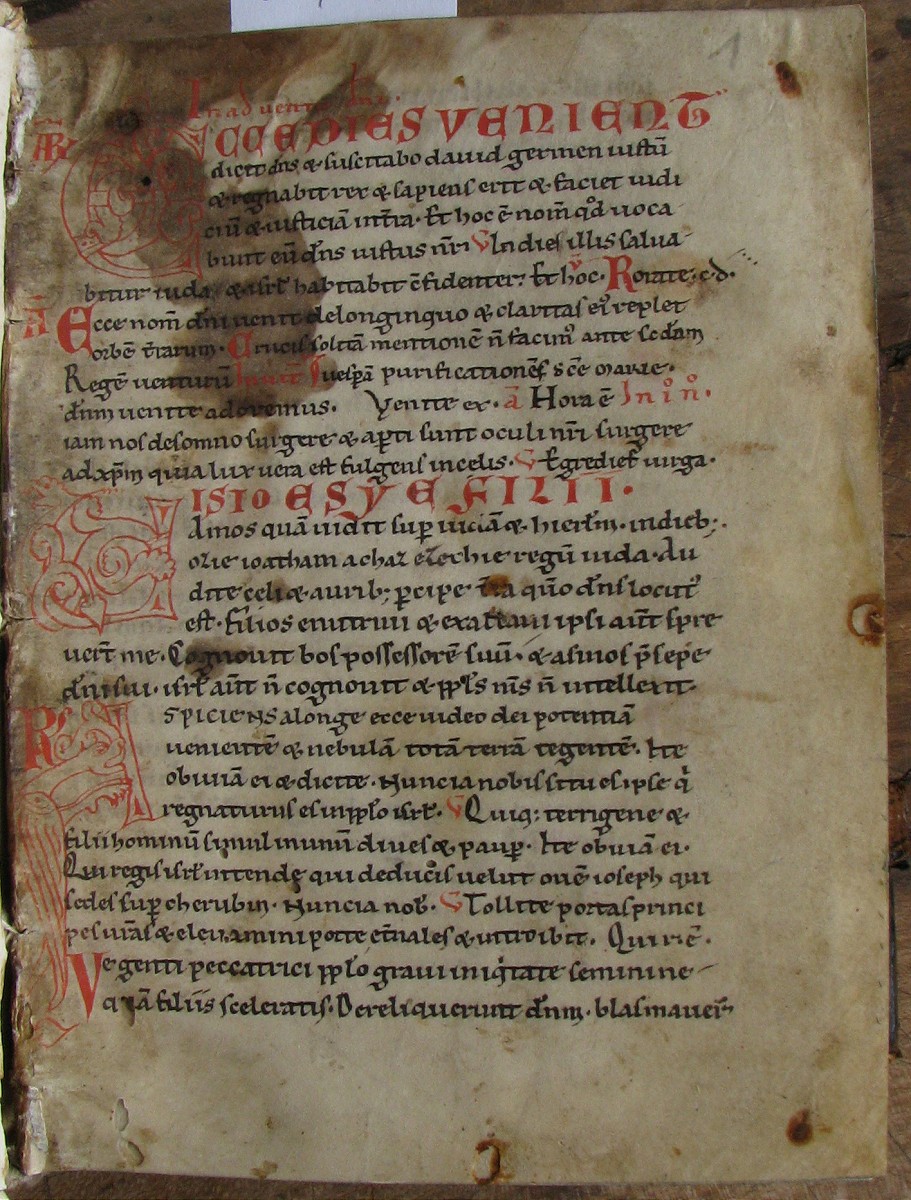 1
In aduentu dni.
AR
ECCE DIES VENIENT
dicit dns & suscitabo dauid germen iustū
& regnabit rex & sapiens erit & faciet iudi
ciū & iusticiā int̄ra· Et hoc ē nom̄ qd̄ uoca
bunt eū dn̄s iustus nr̄· V In dieb illis salua
bitur iuda & isrl̄ habitabit c̄fidenter· Et hoc· V Rorate· c· d·
A Ecce nom̄ dn̄i uenit delonginquo & claritas ei' replet
orbē t̄rarum· Crucis soltā mentionē n̄ facim' ante scdam
Regē uenturū Inuit I uesp̄a purificationēs sc̄e marie·
dn̄m uenite adoremus· Venite ex· a Hora ē In i° n°·
iam nos desomno surgere & ap̄ti sunt oculi nr̄i surgere
ad xp̄m quia lux uera est fulgens in celis· V Egrediet uirga·
VISIO ESYE FILII·
Amos quā uidit sup iudā & hierlm̄· indieb;
ozie ioatham achaz ezechie regū iuda· Au
dite celi & aurib; ꝑcipe t̄ra qūo dn̄s locut'
est· Filios enutriui & exaltaui ipsi aūt spre
uert̄ me· Cognouit bos possessorē suū· & asinos p̄sepe
dn̄i sui· isrl̄ aūt n̄ cognouit & ppl̄s ms̄ n̄ intellexit·
R ASPICIENS alonge ecce uideo dei potentiā
uenientē & nebulā totā terrā tegentē· Ite
obuiā ei & dicite· Nuncia nobis si tu es ipse q̄
regnaturus es in ppl̄o isrl̄· V Quiq; terrigene &
filii hominū simul inunū diues & paup̄· Ite obuiā ei·
Qui regis isrl̄ intende qui deducis uelut ouē ioseph qui
sedes sup cherubin· Nuncia nob̄· V Tollite portas princi
pes ur̄as & eleuamini porte et̄nales & introibit· Qui r̄e·
Ve genti peccatrici ppl̄o graui iniq̄tate semini ne
quā filiis sceleratis· Dereliquerunt dn̄m· blasmauer̄